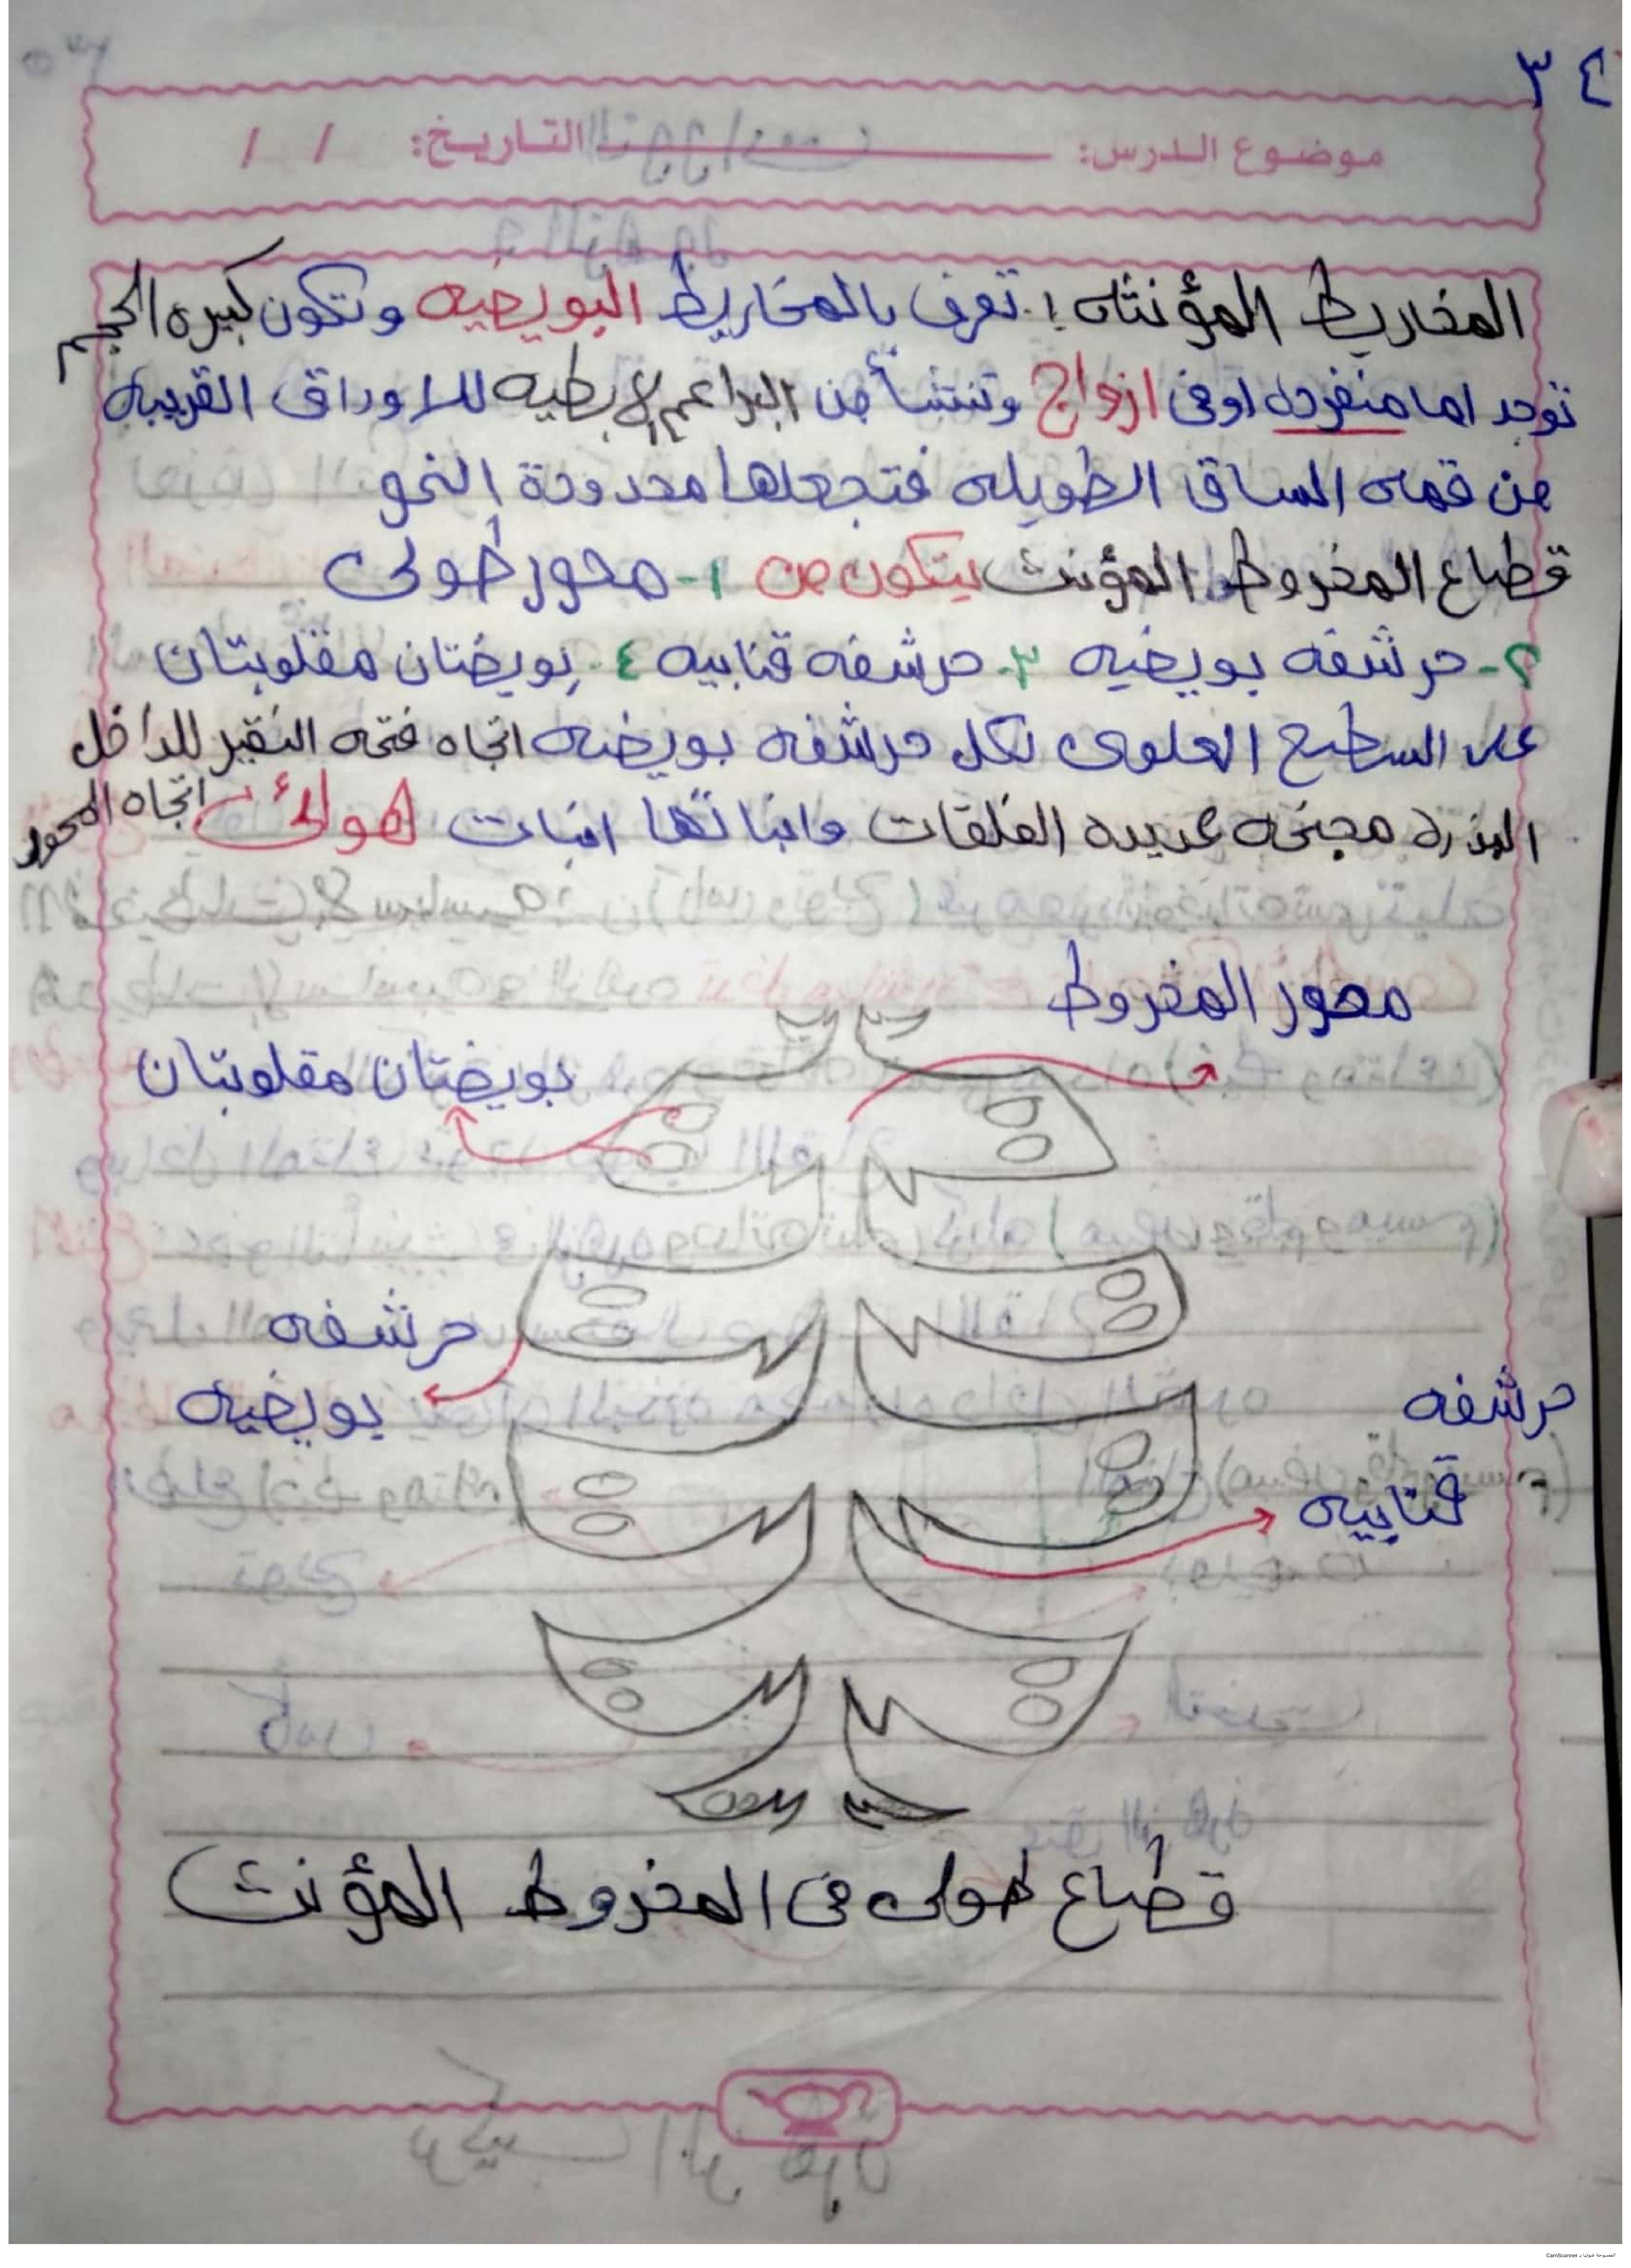 ٣٤
موضوع الدرس: التاريخ: / /
المخاريط المؤنثه :. تعرف بالمخاريط البويضيه وتكون كبيره الحجم
توجد اما منفرده اوفى ازواج وتنشأ من البراعم الإبطيه للاوراق القريبه
من قمه الساق الطويله فتجعلها محدودة النمو
قطاع المخروط المؤنث يتكون من ١- محور طولى
٢- حرشفه بويضيه ٣- حرشفه قنابيه ٤. بويضتان مقلوبتان
على السطح العلوى لكل حرشفه بويضيه اتجاه فتحه النقير للداخل
اتجاه المحور
البذره مجنحه عديده الفلقات وانباتها انبات هوائى
محور المخروط
بويضتان مقلوبتان
حرشفه
بويضيه
حرشفه
قنابيه
قطاع طولى فى المخروط المؤنث
الممسوحة ضوئيا بـ CamScanner